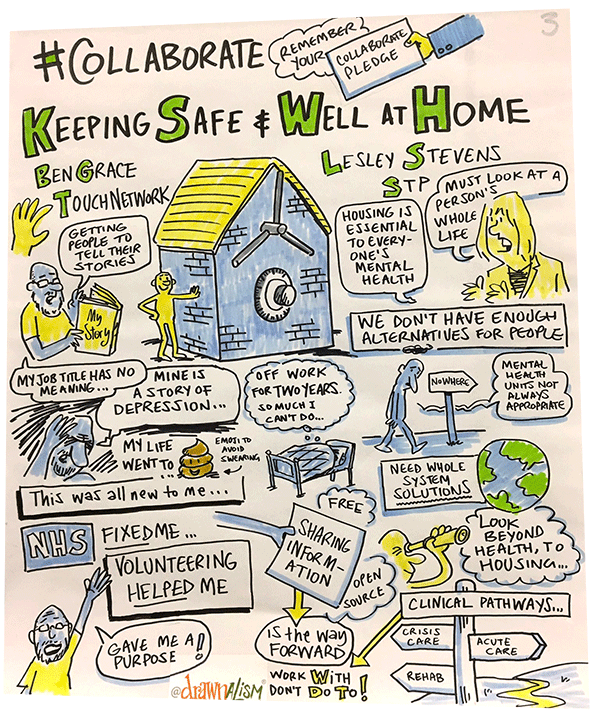 3
#COLLABORATE
REMEMBER
YOUR
COLLABORATE
PLEDGE
KEEPING SAFE & WELL AT HOME
BEN GRACE
TOUCHNETWORK
LESLEY STEVENS
STP
GETTING
PEOPLE TO
TELL THEIR
STORIES
My
Story
HOUSING IS
ESSENTIAL
TO EVERY-
ONE'S
MENTAL
HEALTH
MUST LOOK AT A
PERSON'S
WHOLE
LIFE
WE DON'T HAVE ENOUGH
ALTERNATIVES FOR PEOPLE
MY JOB TITLE HAS NO
MEANING...
MINE IS
A STORY OF
DEPRESSION...
OFF WORK
FOR TWO YEARS.
SO MUCH I
CAN'T DO...
NOWHERE
MENTAL
HEALTH
UNITS NOT
ALWAYS
APPROPRIATE
MY LIFE
WENT TO
EMOJI TO
AVOID
SWEARING
This was all new to me...
NEED WHOLE
SYSTEM
SOLUTIONS
NHS
FIXED ME...
VOLUNTEERING
HELPED ME
GAVE ME A
PURPOSE!
FREE
SHARING
INFORM-
ATION
OPEN
SOURCE
is the WAY
FORWARD
WORK WITH
DON'T DO TO!
LOOK
BEYOND
HEALTH, TO
HOUSING...
CLINICAL PATHWAYS...
CRISIS
CARE
ACUTE
CARE
REHAB
@drawnalism